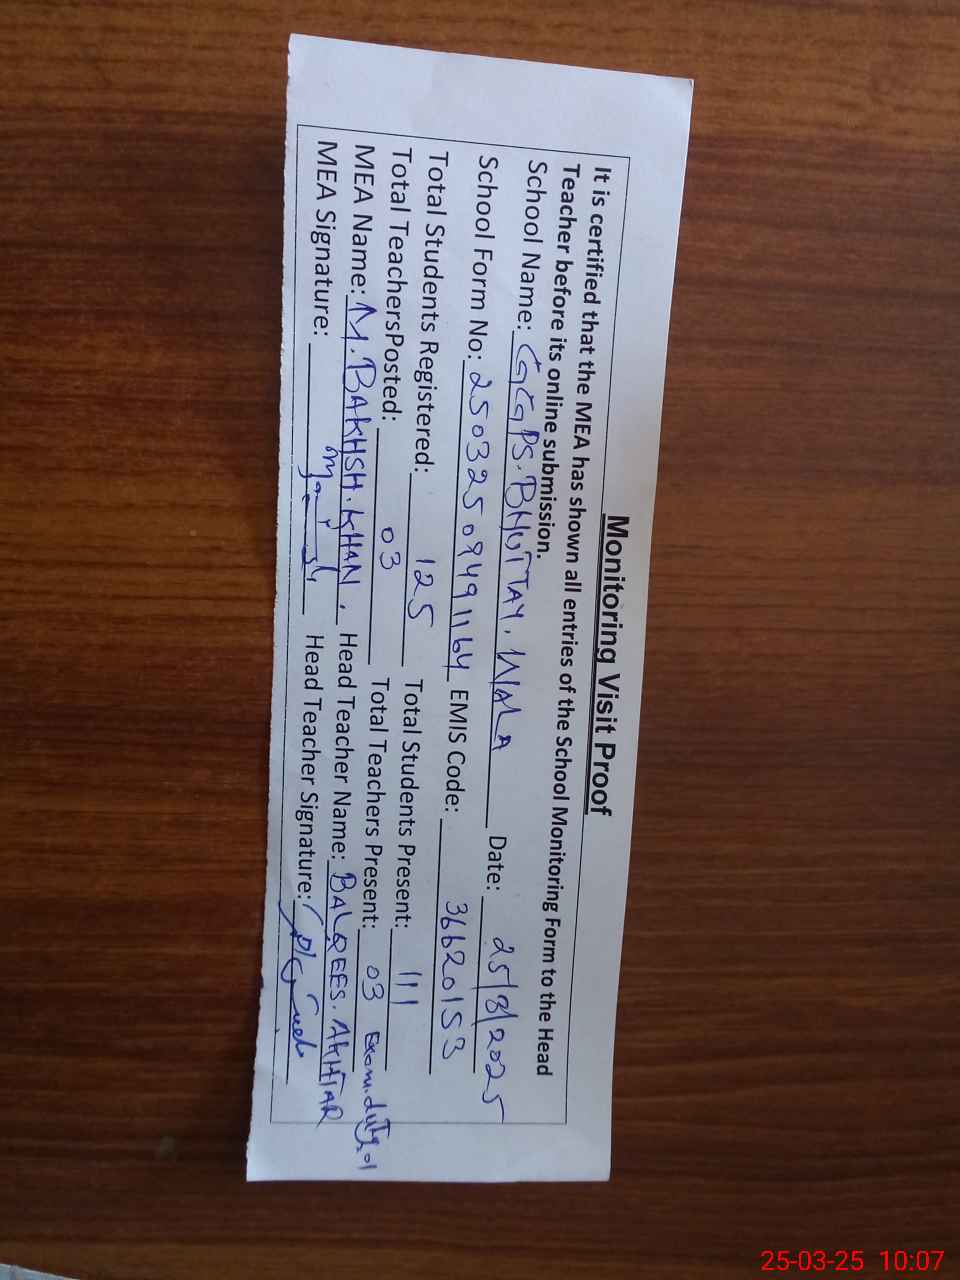 Monitoring Visit Proof
It is certified that the MEA has shown all entries of the School Monitoring Form to the Head
Teacher before its online submission.
School Name: GGPS. BHUTTAY. WALA Date: 25/8/2025
School Form No: 25032509491164 EMIS Code: 36620153
Total Students Registered: 125 Total Students Present: 111
Total TeachersPosted: 03 Total Teachers Present: 03 Exam. duty 01
MEA Name: M. BAKHSH. KHAN. Head Teacher Name: BALQEES. AKHTAR
MEA Signature: Head Teacher Signature:
25-03-25 10:07